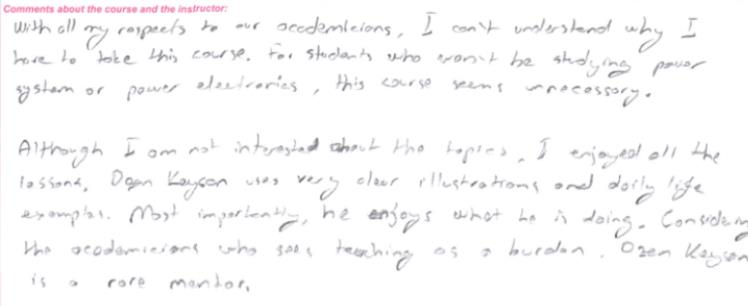 Comments about the course and the instructor:
With all my respects to our academicians, I can't understand why I
have to take this course. For students who won't be studying power
system or power electronics, this course seems unnecessary.
Although I am not interested about the topics, I enjoyed all the
lessons. Ozan Keysan uses very clear illustrations and daily life
examples. Most importantly, he enjoys what he is doing. Considering
the academicians who sees teaching as a burden, Ozan Keysan
is a rare mentor.